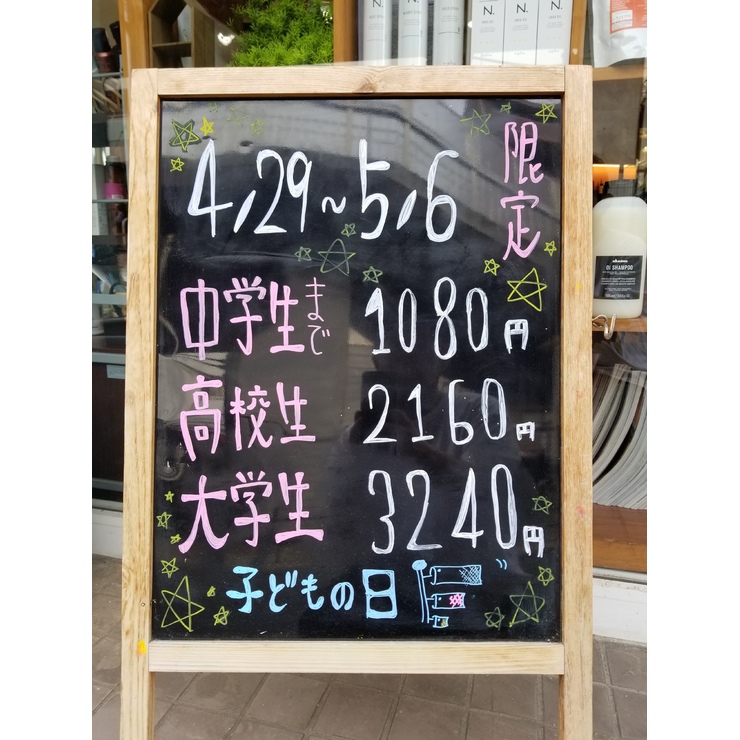 N.
N.
N.
4,29~5,6
限定
中学生まで 1080円
高校生 2160円
大学生 3240円
子どもの日
OI SHAMPOO